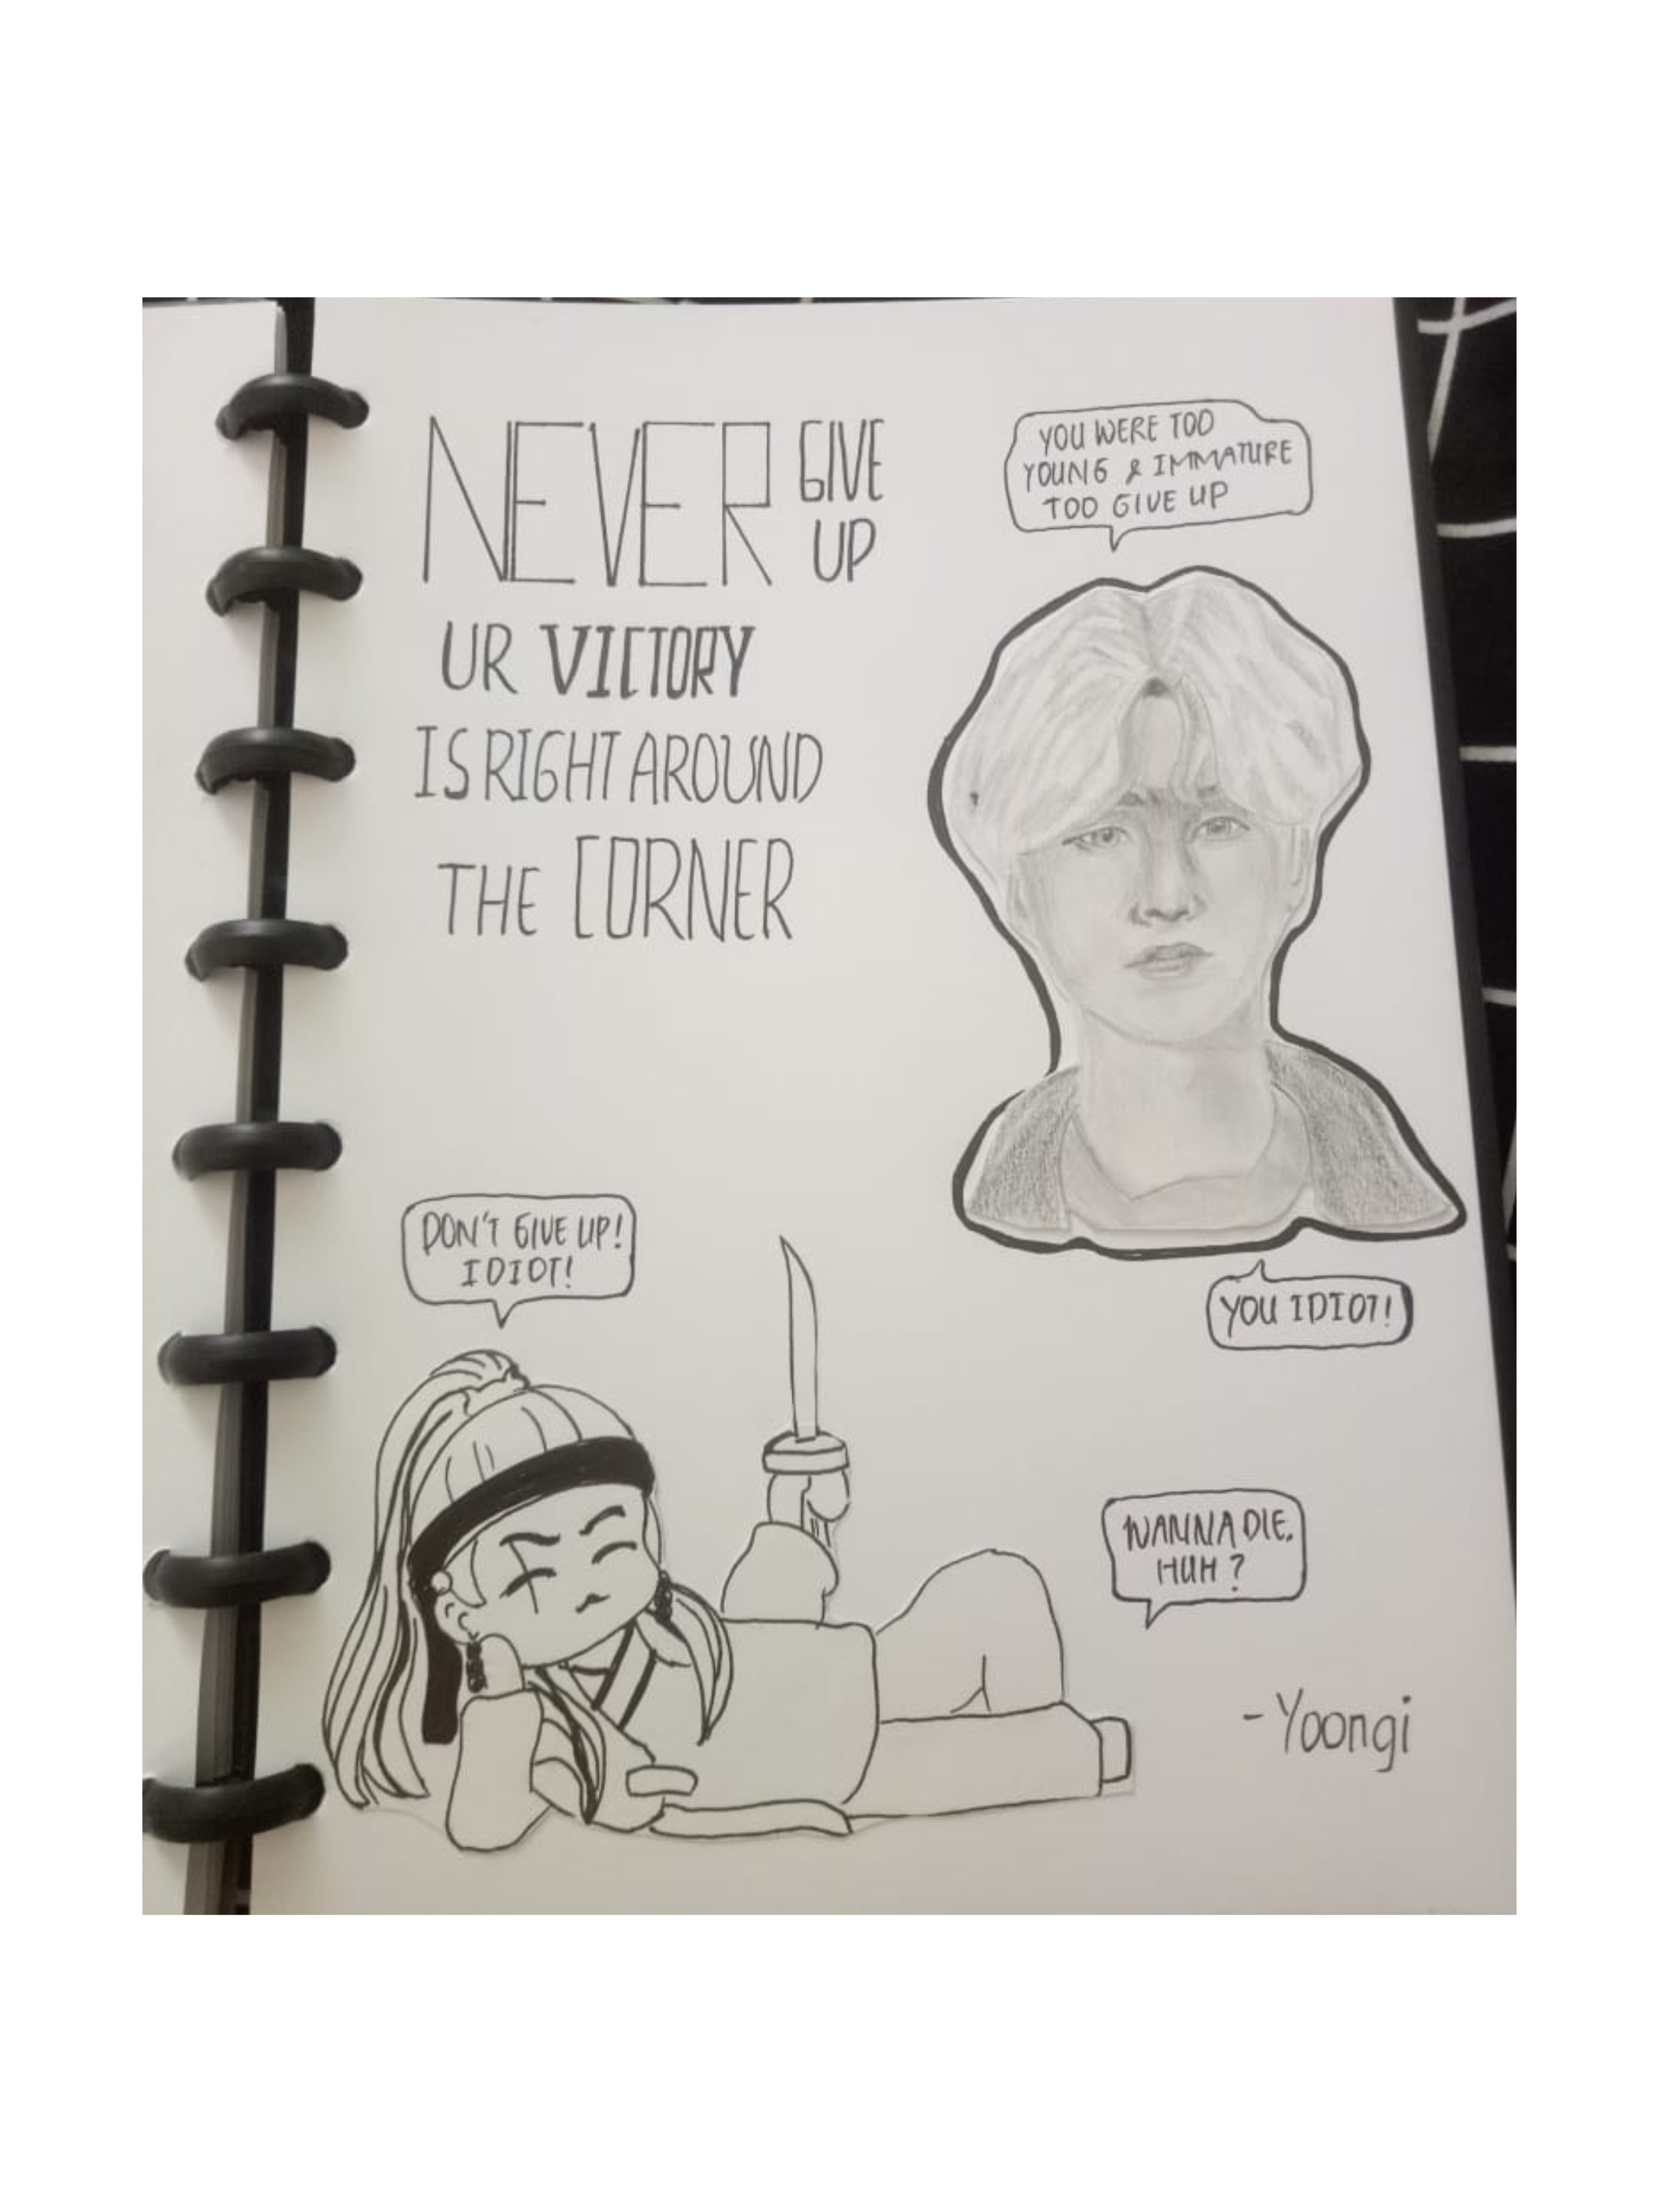 NEVER GIVE
UP
UR VICTORY
IS RIGHT AROUND
THE CORNER
YOU WERE TOO
YOUNG & IMMATURE
TOO GIVE UP
YOU IDIOT!
DON'T GIVE UP!
IDIOT!
WANNA DIE,
HUH?
-Yoongi